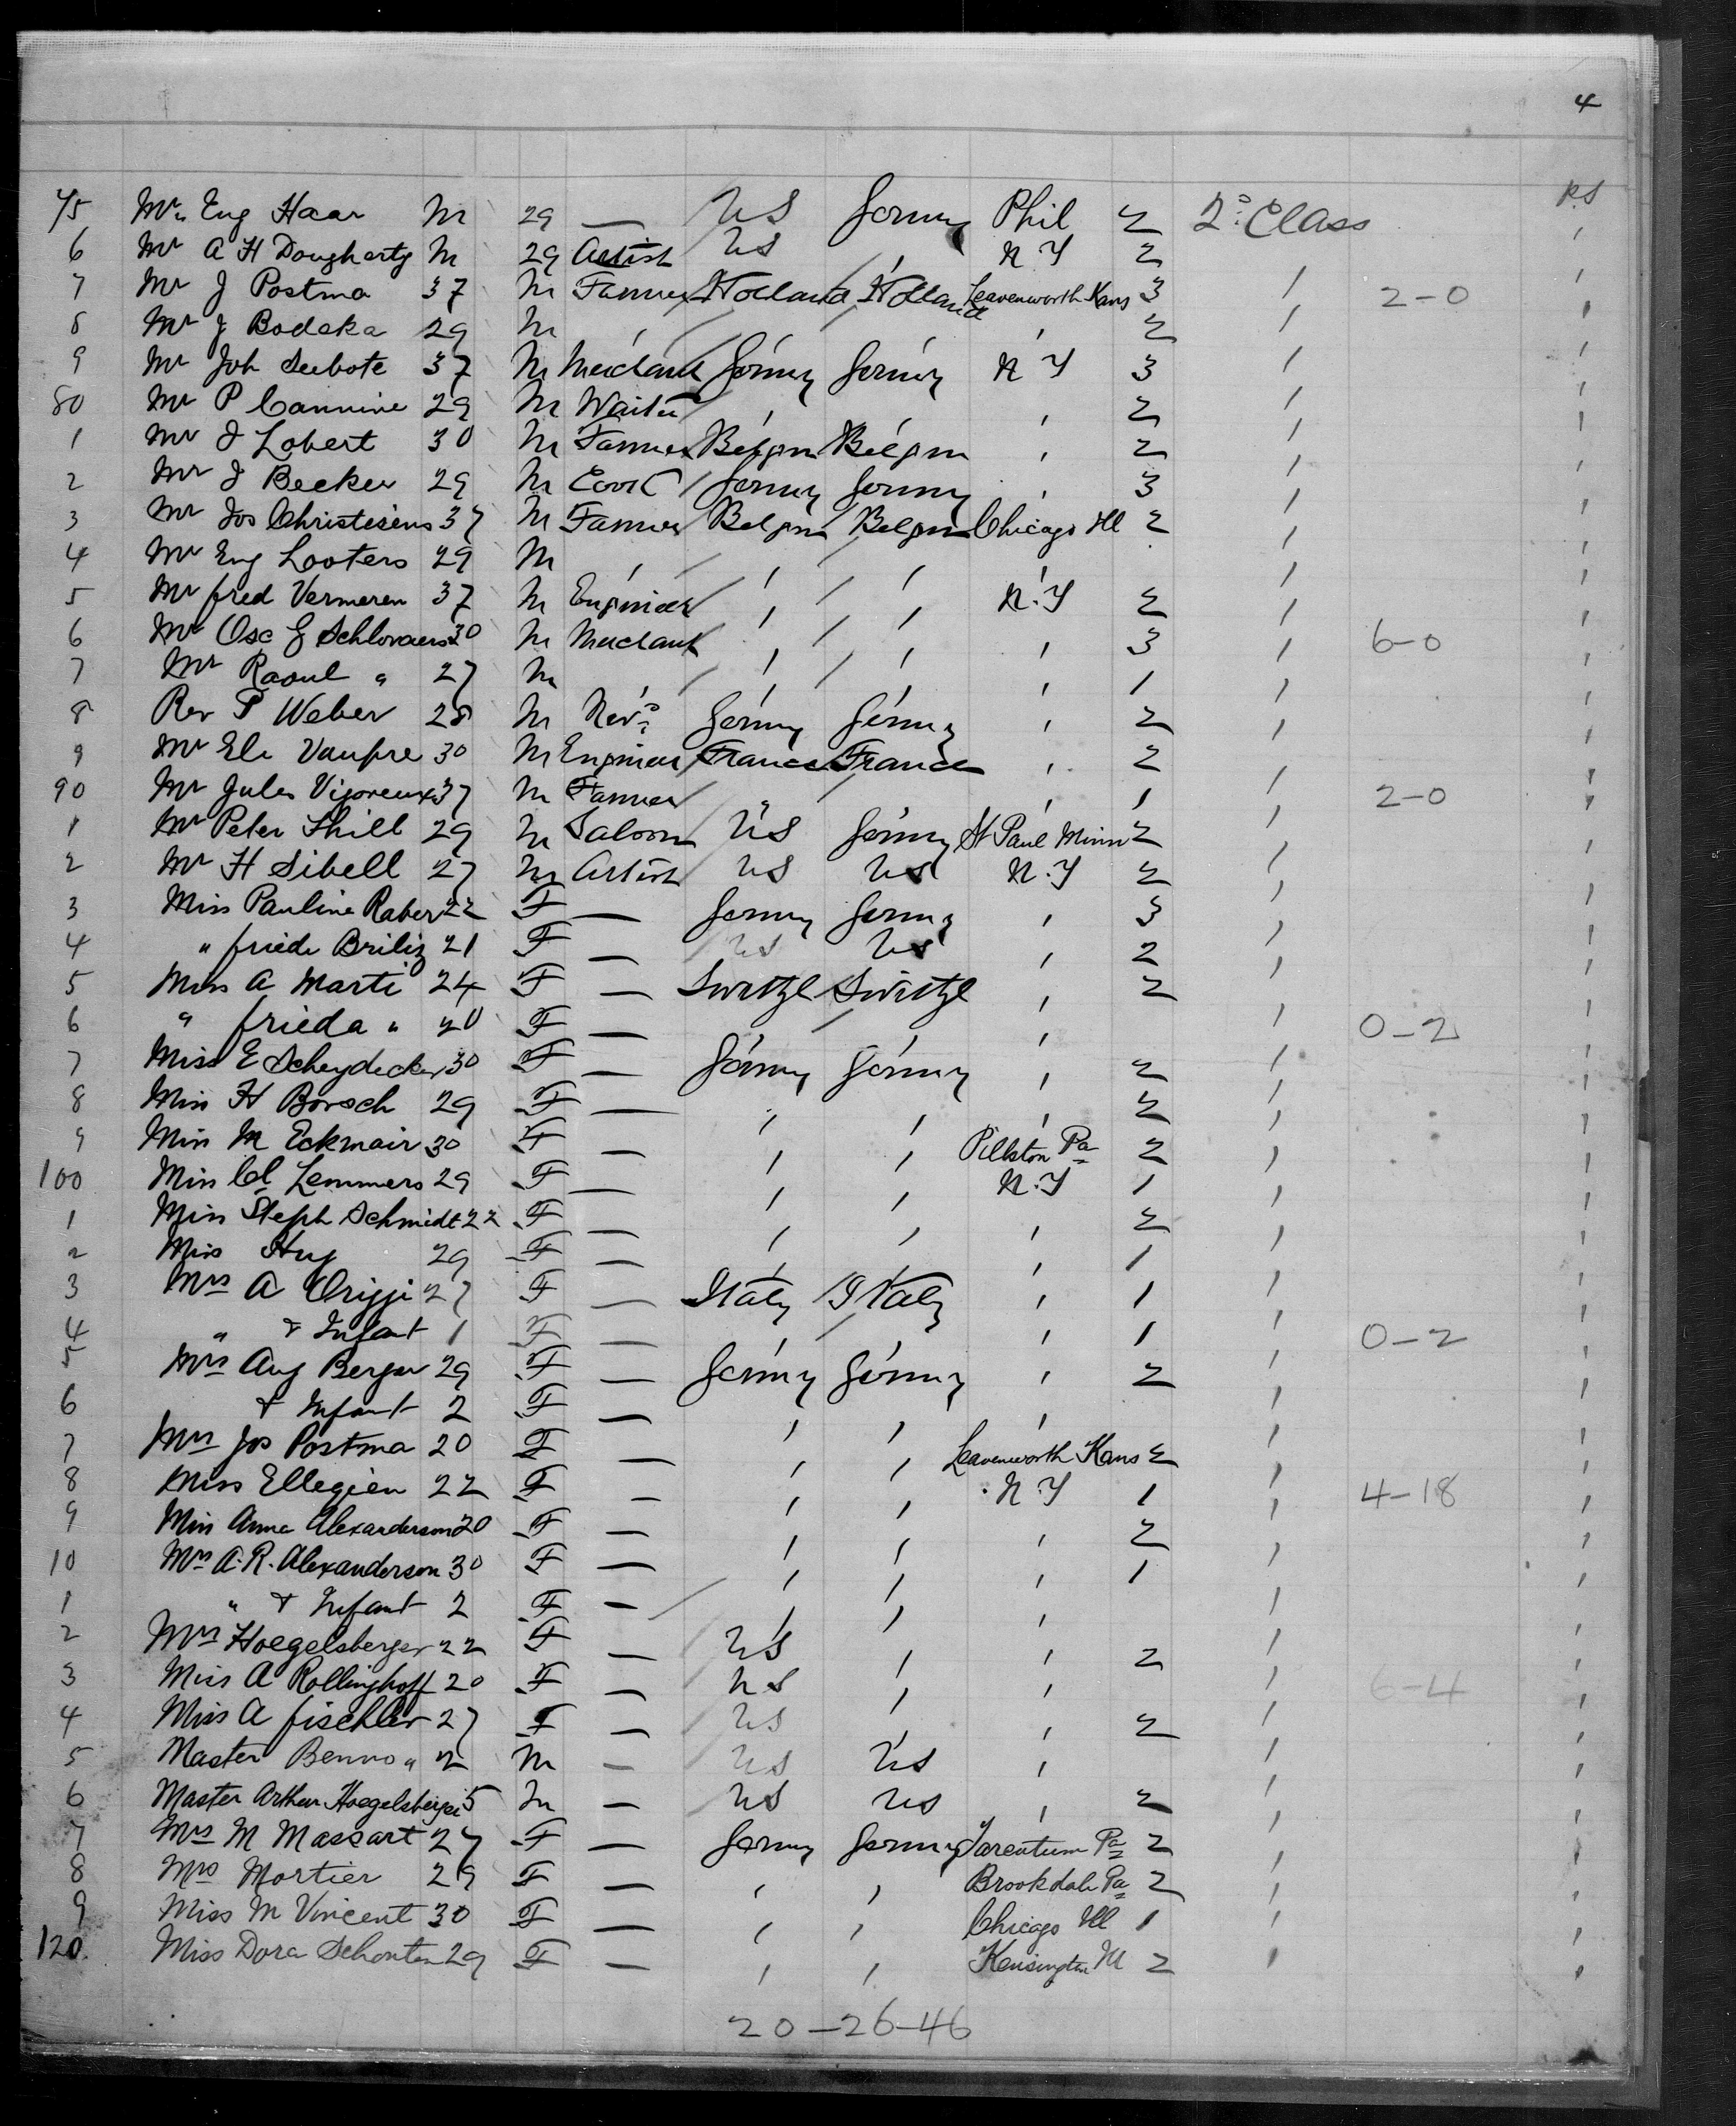 4
RS
75 Mr. Eug Haar M 29 — US Germy Phil 2 2º Class
6 Mr A H Dougherty M 29 Artist US ' N Y 2
7 Mr J Postma 37 M Farmer Holland Holland Leavenworth Kans 3 2-0
8 Mr J Bodeka 29 M ' ' ' ' 2
9 Mr Joh Seebote 37 M Merchant Germy Germy N Y 3
80 Mr P Cannine 29 M Waiter ' ' ' 2
1 Mr J Lobert 30 M Farmer Belgm Belgm ' 2
2 Mr J Becker 29 M Cook Germy Germy ' 3
3 Mr Jos Christesens 37 M Farmer Belgm Belgm Chicago Ill 2
4 Mr Eug Looters 29 M ' ' ' '
5 Mr Fred Vermeren 37 M Engineer ' ' N.Y 2
6 Mr Osc G Schlovaers 30 M Merchant ' ' ' 3 6-0
7 Mr Raoul " 27 M ' ' ' ' 1
8 Rev P Weber 28 M Revd Germy Germy ' 2
9 Mr Ele Vaupre 30 M Engineer France France ' 2
90 Mr Jules Vigoreux 37 M Farmer " ' 1 2-0
1 Mr Peter Thill 29 M Saloon US Germy St Paul Minn 2
2 Mr H Sibell 27 M Artist US US N.Y 2
3 Miss Pauline Raber 22 F — Germy Germy ' 3
4 " Friede Briliz 21 F — US US ' 2
5 Miss A Marti 24 F — Switzl Switzl ' 2
6 " Frieda " 20 F — ' 0-2
7 Miss E Scheydecker 30 F — Germy Germy ' 2
8 Miss H Borsch 29 F — ' ' ' 2
9 Miss M Eckmair 30 F — ' ' Pillston Pa 2
100 Miss Cl Lemmers 29 F — ' ' N.Y 1
1 Miss Steph Schmidt 22 F — ' ' ' 2
2 Miss Hug 29 F — ' ' ' 1
3 Mrs A Origgi 27 F — Italy Italy ' 1
4 " & Infant 1 F — ' 1 0-2
5 Mrs Aug Berger 29 F — Germy Germy ' 2
6 & Infant 2 F — ' ' '
7 Mrs Jos Postma 20 F — ' ' Leavenworth Kans 2
8 Miss Ellegien 22 F — ' ' N.Y 1 4-18
9 Miss Anna Alexanderson 20 F — ' ' ' 2
10 Mrs A.R. Alexanderson 30 F — ' ' ' 1
1 " & Infant 2 F — ' ' '
2 Mrs Hoegelsberger 22 F — US ' ' 2
3 Miss A Rollinghoff 20 F — US ' ' 6-4
4 Miss A Fischler 27 F — US ' ' 2
5 Master Benno " 2 M — US US '
6 Master Arthur Hoegelsberger 5 M — US US ' 2
7 Mrs M Massart 27 F — Germy Germy Tarentum Pa 2
8 Mrs Mortier 29 F — ' ' Brookdale Pa 2
9 Miss M Vincent 30 F — ' ' Chicago Ill 1
120. Miss Dora Schouten 29 F — ' ' Kensington Ill 2
20-26-46